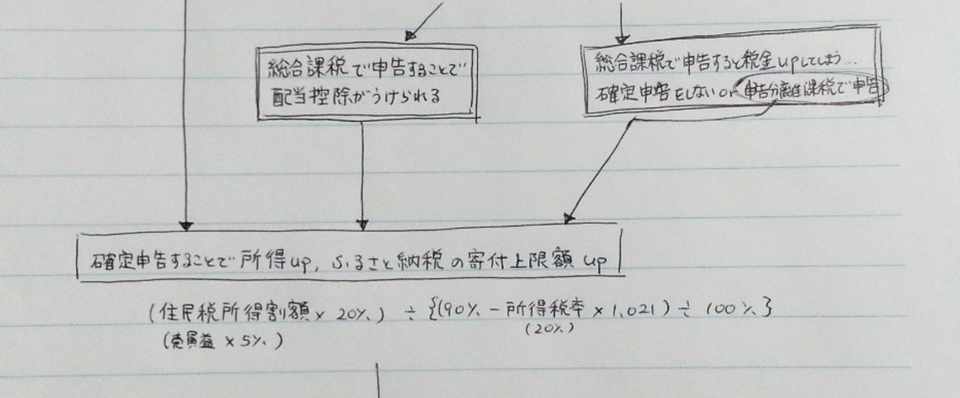 総合課税で申告することで
配当控除がうけられる
総合課税で申告すると税金upしてしまう…
確定申告をしない or 申告分離課税で申告
確定申告することで所得up, ふるさと納税の寄付上限額up
(住民税所得割額×20%) ÷ {(90%-所得税率×1.021)÷100%}
(売買益×5%) (20%)